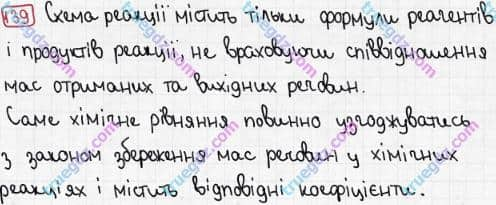 139 Схема реакції містить тільки формули реагентів
і продуктів реакції, не враховуючи співвідношення
мас отриманих та вихідних речовин.
Саме хімічне рівняння повинно узгоджуватись
з законом збереження мас речовин у хімічних
реакціях і містить відповідні коефіцієнти.